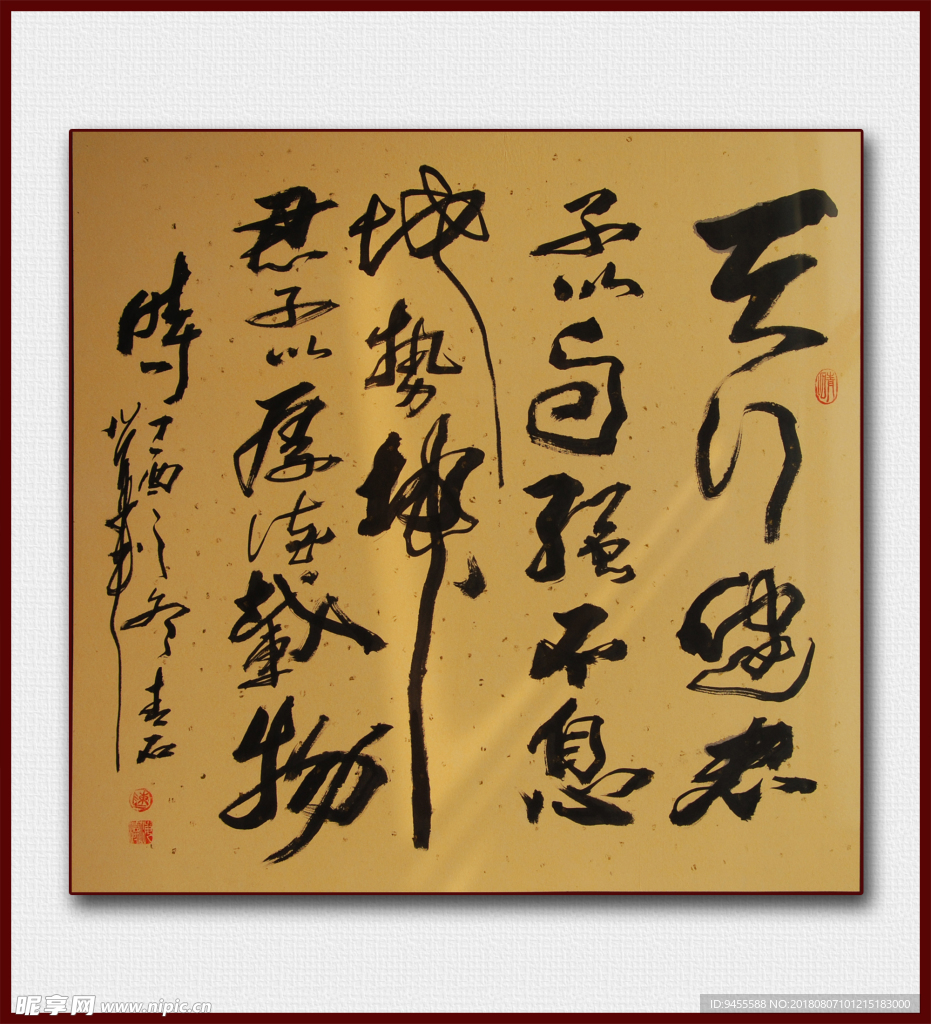 天行健君
子以自强不息
地势坤
君子以厚德载物
时
丁酉之冬 青石
昵享网 www.nipic.cn
ID:9455588 NO:20180807101215183000